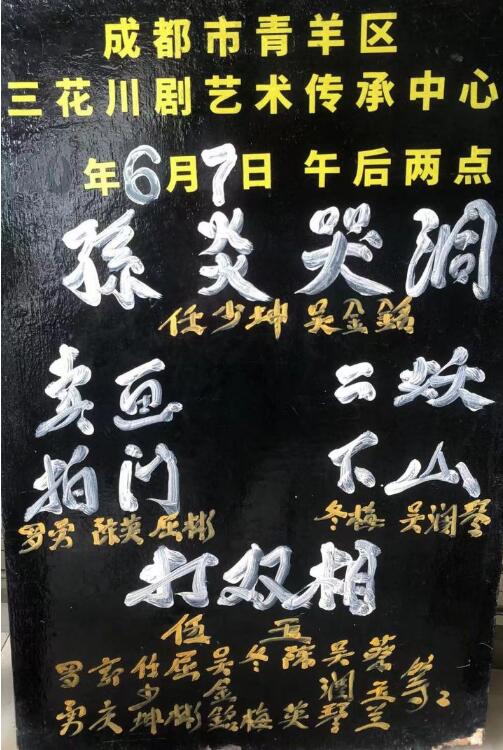 成都市青羊区
三花川剧艺术传承中心
年6月7日 午后两点
孫炎哭洞
任少坤 吴金銘
卖画
拍门
罗勇 陈英 屈彬
二妖
下山
冬梅 吴润琴
打双相
伍玉
罗勇 任少坤 屈彬 吴金銘 冬梅 陈英 吴润琴 蔡玉兰 等